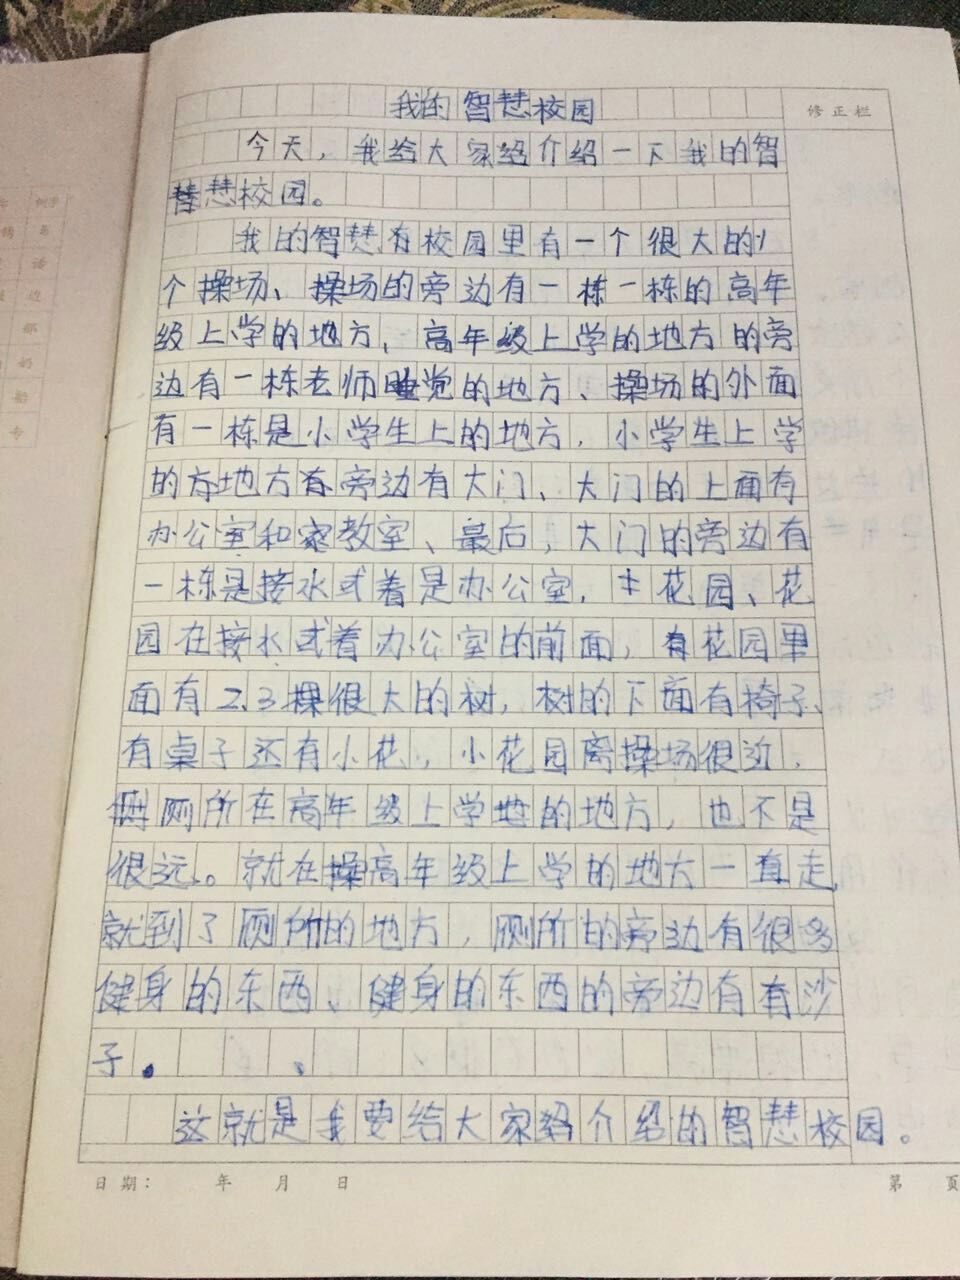 我的智慧校园
修正栏
今天，我给大家绍介绍一下我的智
慧慧校园。
我的智慧有校园里有一个很大的
个操场、操场的旁边有一栋一栋的高年
级上学的地方，高年级上学的地方的旁
边有一栋老师睡觉的地方、操场的外面
有一栋是小学生上的地方，小学生上学
的方地方有旁边有大门、大门的上面有
办公室和家教室、最后，大门的旁边有
一栋是接水或着是办公室，花园、花
园在接水或着办公室的前面，有花园里
面有2、3棵很大的树，树的下面有椅子、
有桌子还有小花，小花园离操场很近，
厕所在高年级上学地的地方，也不是
很远。就在操高年级上学的地方一直走，
就到了厕所的地方，厕所的旁边有很多
健身的东西、健身的东西的旁边有有沙
子。
这就是我要给大家绍介绍的智慧校园。
日期： 年 月 日
第 页